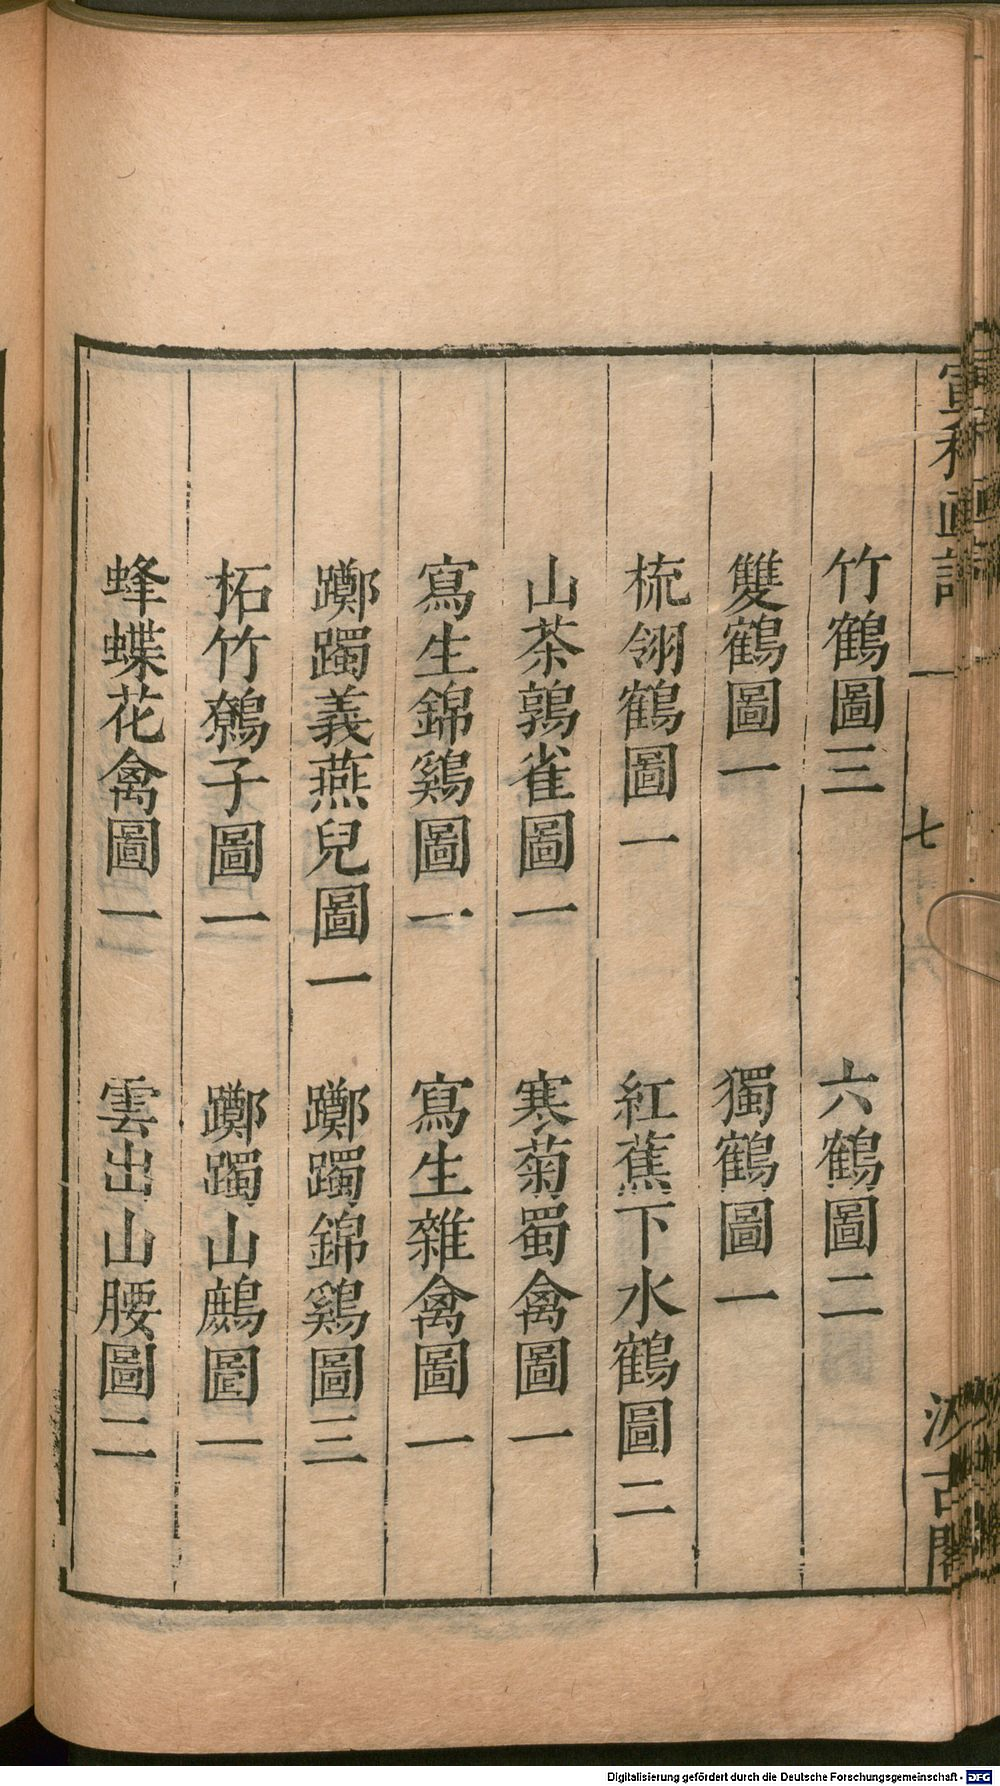 宣和画譜 一 七 汲古閣
竹鶴圖三 六鶴圖二
雙鶴圖一 獨鶴圖一
梳翎鶴圖一 紅蕉下水鶴圖二
山茶鶉雀圖一 寒菊蜀禽圖一
寫生錦鷄圖一 寫生雜禽圖一
躑躅義燕兒圖一 躑躅錦鷄圖三
拓竹鶺子圖一 躑躅山鷓圖一
蜂蝶花禽圖一 雲出山腰圖二
Digitalisierung gefördert durch die Deutsche Forschungsgemeinschaft - DFG